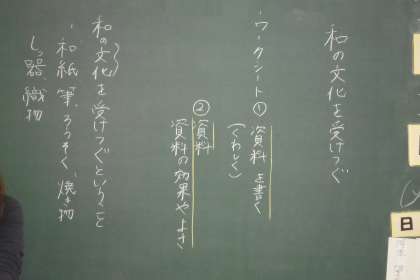 和の文化を受けつぐ
ワークシート① 資料を書く
(くわしく)
② 資料
資料の効果やよさ
和の文化を受けつぐということ
・和紙、筆、ろうそく、焼き物
しっ器、織物
日